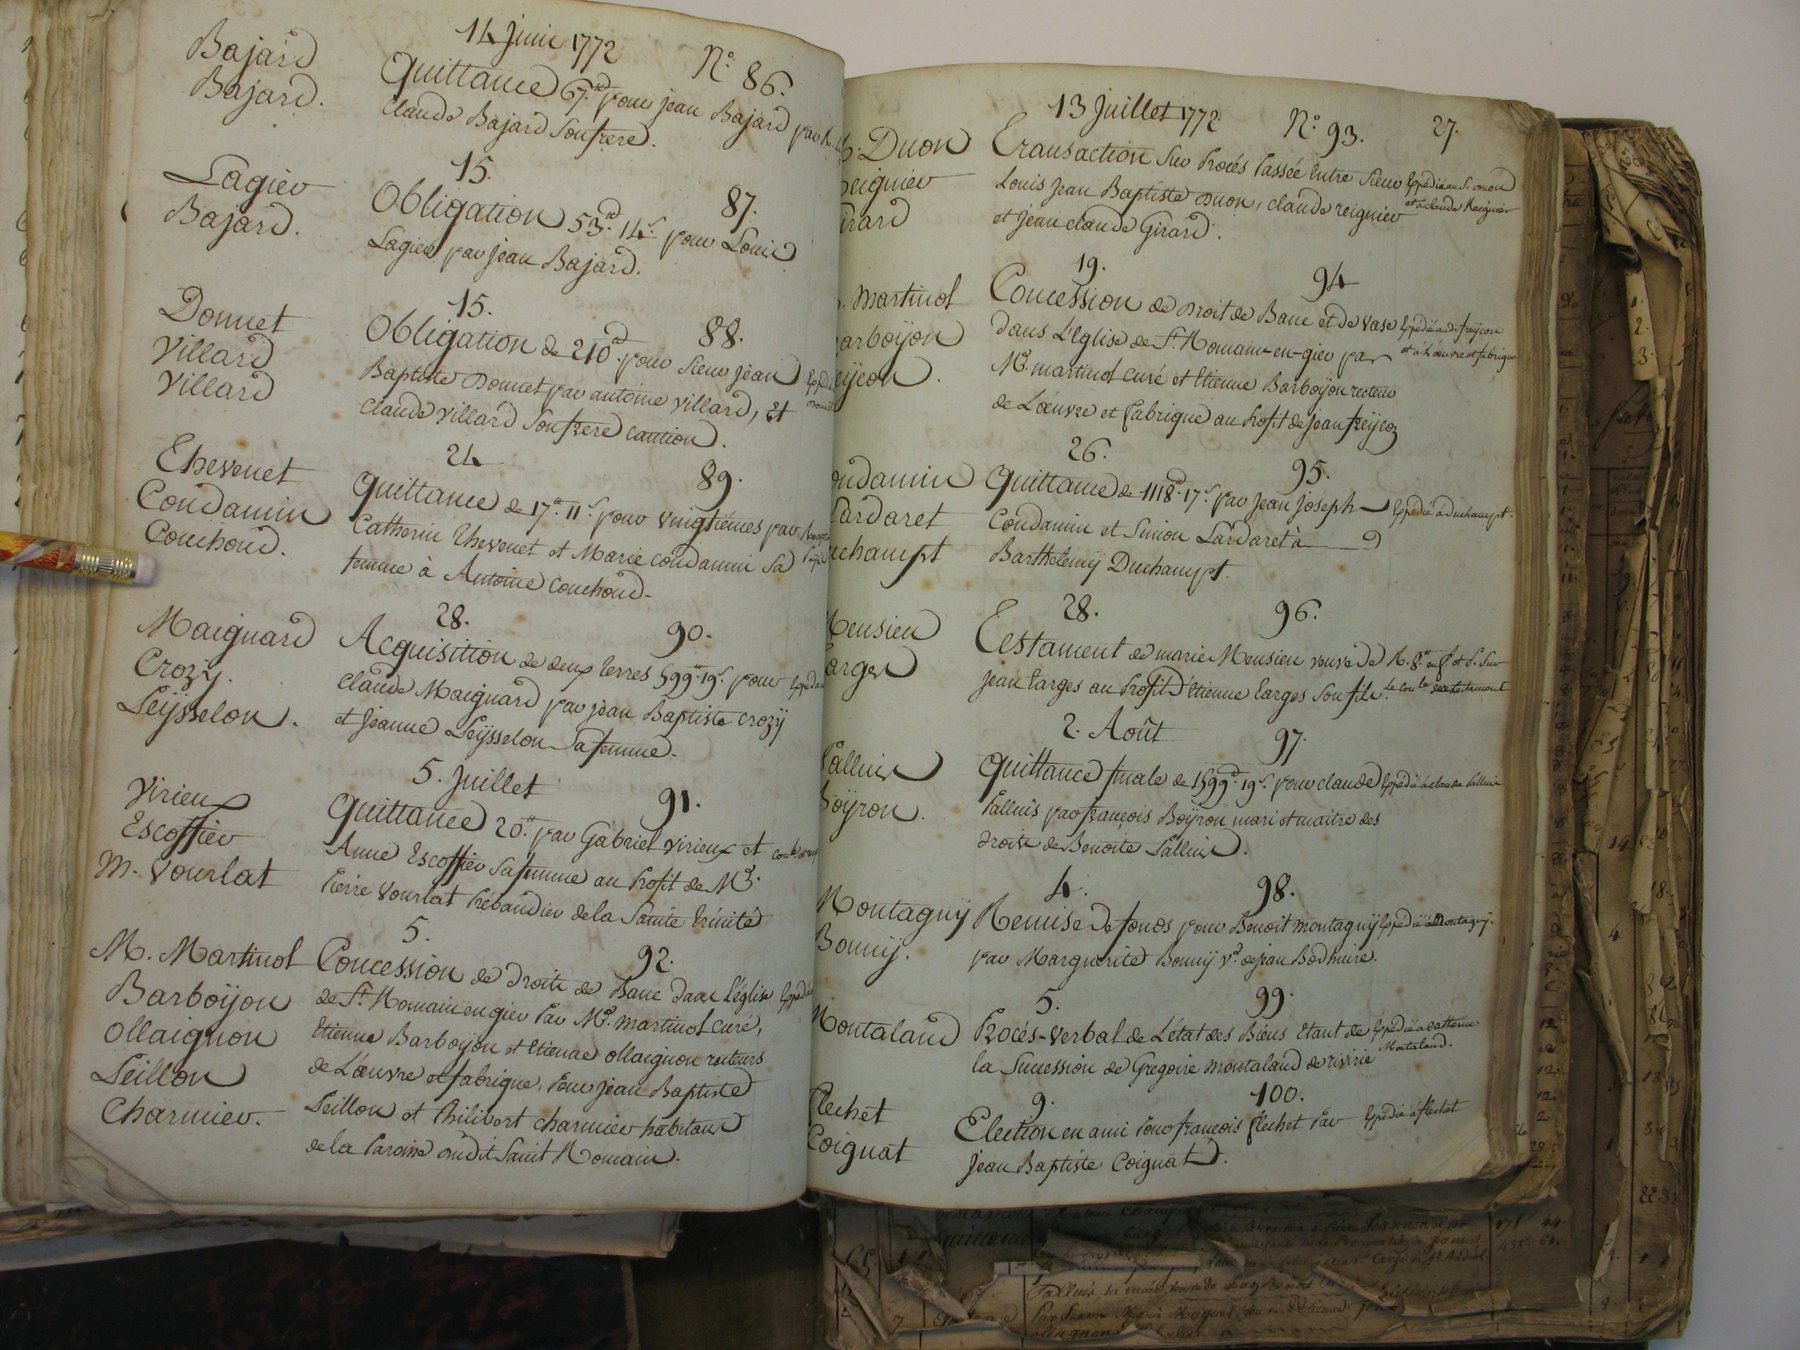 14 Juin 1772 N.° 86.
Bajard
Bajard.
Quittance 67.# pour jean Bajard par
Claude Bajard Son frere.
15.
87.
Lagier
Bajard.
Obligation 53.# 14.s pour Louis
Lagier par jean Bajard.
15.
88.
Donnet
Villard
Villard
Obligation de 210.# pour Sieur jean
Baptiste Donnet par antoine villard, Et
Claude villard Son frere caution.
24
89.
Thevenet
Condamin
Couchoud.
Quittance de 17.# 11.s pour vingtièmes par
Catherin Thevenet et Marie condamin Sa
femme à Antoine couchoud.
28.
90.
Maignard
Crozy.
Peÿsselon.
Acquisition de deux terres 599.# 19.s pour
Claude Maignard par jean Baptiste crozÿ
et Jeanne Peÿsselon Sa femme.
5. Juillet
91.
Virieux
Escoffier
M. Vourlat
Quittance 20.# par Gabriel Virieux et
Anne Escoffier Sa femme au Profit de M.e
Pierre Vourlat Prébandier de la Sainte Trinité
5.
92.
M. Martinol
Barboÿon
Ollaignon
Peillon
Charmier.
Concession de droits de Banc dans L'église
de S.t Romain en gier Par M.e martinol curé,
Etienne Barboÿon et Etienne ollaignon recteurs
de L'œuvre et fabrique, Pour jean Baptiste
Peillon et Philibert charmier habitans
de la Paroisse dudit Saint Romain.
13 Juillet 1772 N.° 93. 27.
Duon
Reignier
Girard
Transaction Sur Procés Passée Entre Sieur Expédié au S. duon
Louis Jean Baptiste duon, claude reignier et à claude Reignier
et jean claude Girard.
19.
94
Martinol
Barboÿon
Freÿcon.
Concession de droit de Banc et de vase Expédié audit freÿcon
dans L'Eglise de S.t Romain-en-gier par et à L'œuvre et fabrique
M.e martinol curé et Etienne Barboÿon recteur
de L'œuvre et fabrique au Profit de jean freÿcon
26.
95.
Condamin
Lardaret
Duchampt
Quittance de 1118.# 17.s par jean joseph Expédié à Duchampt.
Condamin et Simon Lardaret à
Barthelemÿ Duchampt.
28.
96.
Mensieu
Targes
Testament de marie Mensieu veuve de
jean Targes au Profit d'Etienne Targes Son fils. testament
2. Août
97.
Palluis
Boÿron.
Quittance finale de 1599.# 19.s pour claude Expédié à claude Palluis
Palluis par françois Boÿron mari et maitre des
droits de Benoite Palluis.
4.
98.
Montagnÿ
Bonnÿ.
Remise de fonds pour Benoit montagnÿ Expédié à Montagnÿ.
par Marguerite Bonnÿ v.e de jean Bodhuire.
5.
99.
Montaland
Procés-verbal de L'état des Biens Etant de Expédié à Catherin
la Succession de Gregoire montaland de riverie Montaland.
9.
100.
Flechet
Coignat
Election en ami Pour françois flechet Par Expédié à flechet
jean Baptiste Coignat.